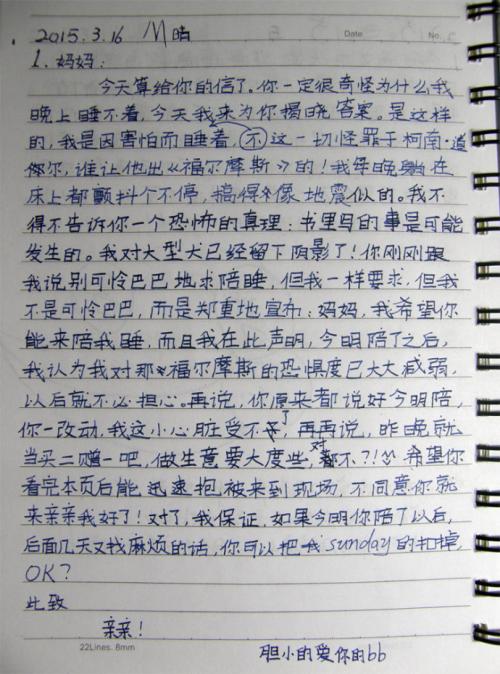 2015.3.16 M晴
Date No.
1.妈妈:
今天算给你的信了。你一定很奇怪为什么我
晚上睡不着,今天我来为你揭晓答案。是这样
的,我是因害怕而睡不着,这一切怪罪于柯南·道
尔,谁让他出《福尔摩斯》的!我每晚躺在
床上都颤抖个不停,搞得像地震似的。我不
得不告诉你一个恐怖的真理:书里写的事是可能
发生的。我对大型犬已经留下阴影了!你刚刚跟
我说别可怜巴巴地求陪睡,但我一样要求,但我
不是可怜巴巴,而是郑重地宣布:妈妈,我希望你
能来陪我睡,而且我在此声明,今明陪了之后,
我认为我对那福尔摩斯的恐惧度已大大减弱,
以后就不必担心。再说,你原来都说好今明陪,
你一改动,我这小心脏受不了,再再说,昨晚就
当买二赠一吧,做生意要大度些,对不?!希望你
看完本页后能迅速抱被来到现场,不同意你就
来亲亲我好了!对了,我保证,如果今明你陪了以后,
后面几天又找麻烦的话,你可以把我sunday的扣掉,
OK?
此致
亲亲!
22Lines. 8mm
胆小的爱你的bb